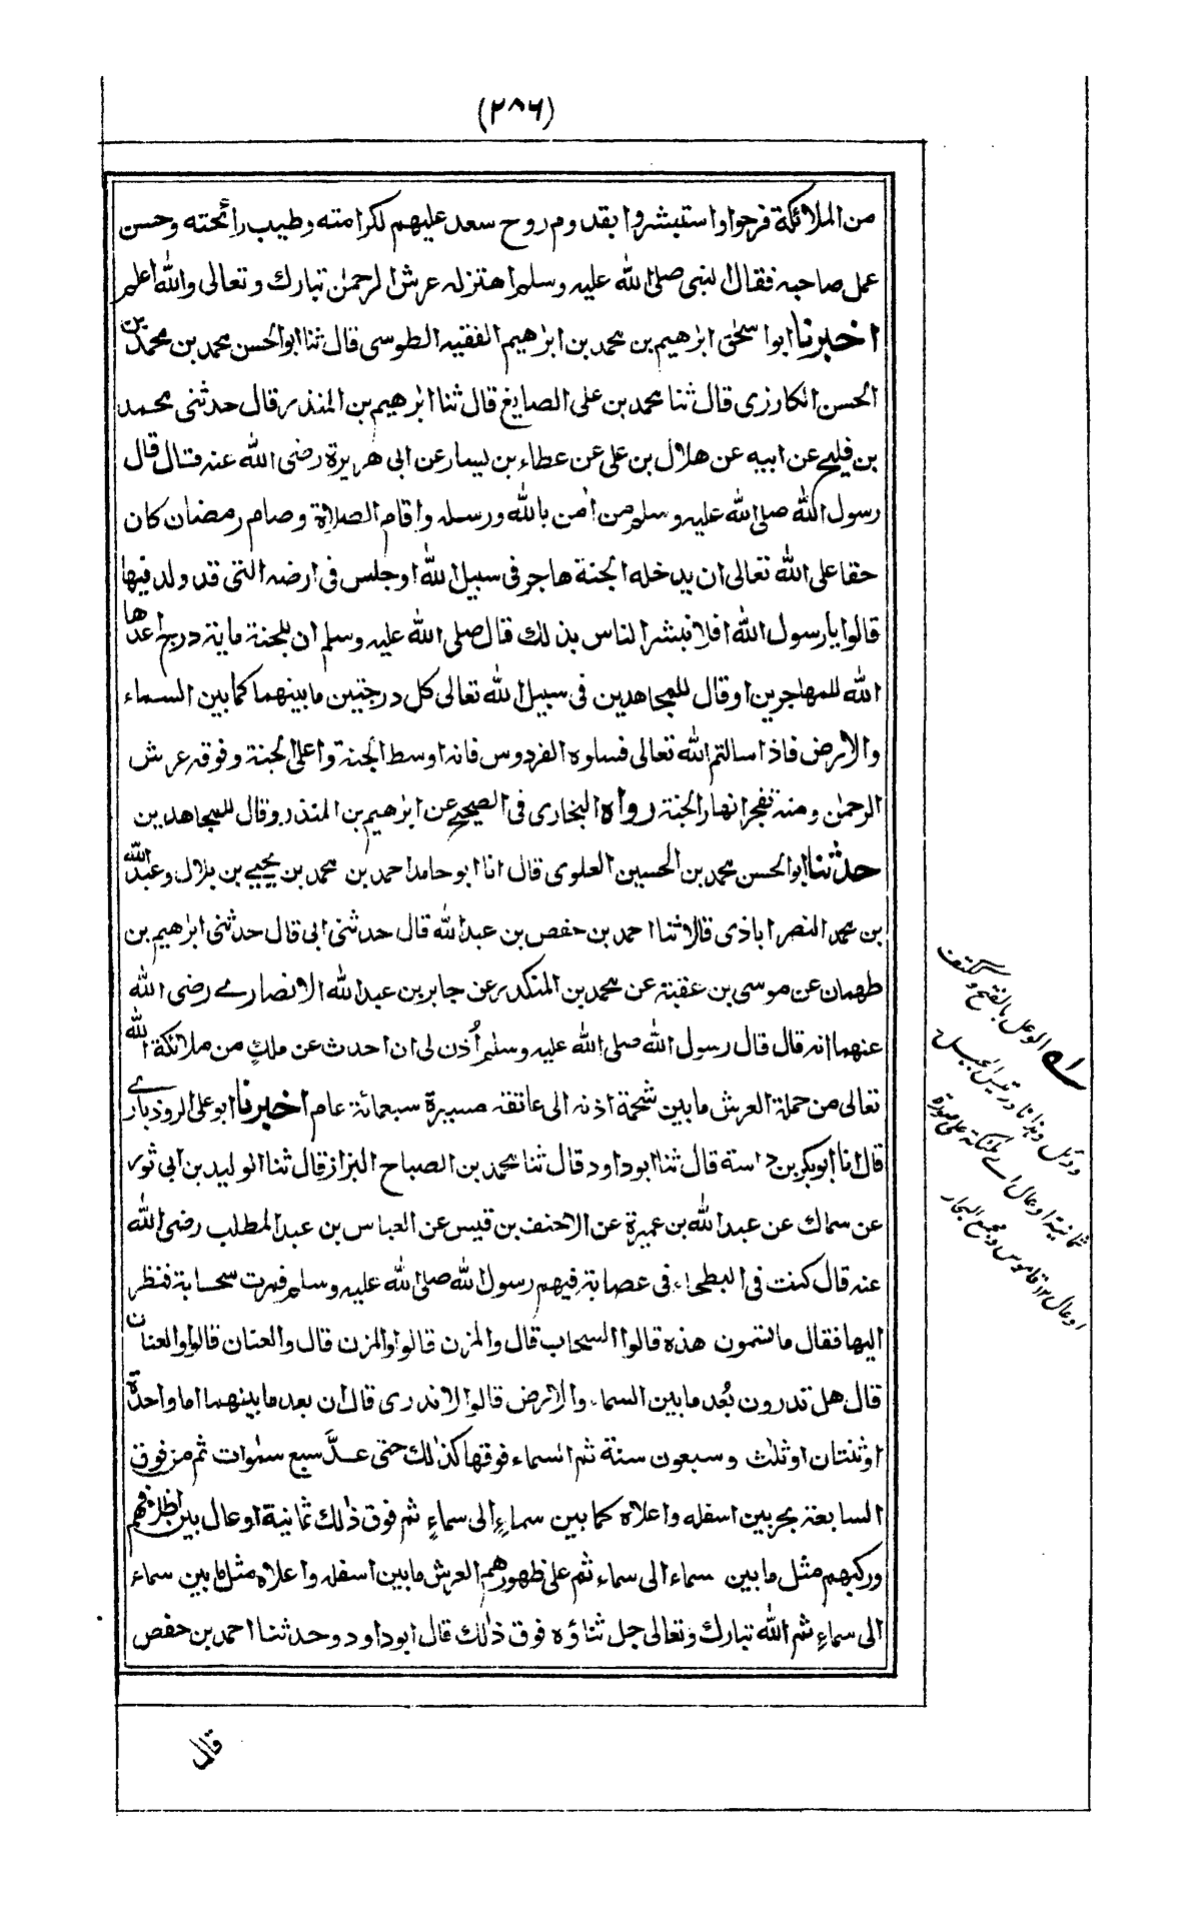 (٢٨٦)
من الملائكة فرحوا واستبشروا بقدوم روح سعد عليهم لكرامته وطيب رائحته وحسن
عمل صاحبه فقال النبى صلى الله عليه وسلم اهتزله عرش الرحمٰن تبارك وتعالى والله اعلم
اخبرنا ابواسحٰق ابرٰهيم بن محمد بن ابرٰهيم الفقيه الطوسى قال ثنا ابوالحسن محمد بن محمد بن
الحسن الكارزى قال ثنا محمد بن على الصايغ قال ثنا ابرٰهيم بن المنذر قال حدثنى محمد
بن فليح عن ابيه عن هلال بن على عن عطاء بن يسار عن ابى هريرة رضى الله عنه قال قال
رسول الله صلى الله عليه وسلم من اٰمن بالله ورسله واقام الصلاة وصام رمضان كان
حقا على الله تعالى ان يدخله الجنة هاجر فى سبيل الله او جلس فى ارضه التى قد ولد فيها
قالوا يا رسول الله افلا نبشر الناس بذلك قال صلى الله عليه وسلم ان للجنة ماية درجة اعدها
الله للمهاجرين او قال للمجاهدين فى سبيل الله تعالى كل درجتين ما بينهما كما بين السماء
والارض فاذا سالتم الله تعالى فسلوه الفردوس فانه اوسط الجنة واعلى الجنة وفوقه عرش
الرحمٰن ومنه تفجر انهار الجنة رواه البخارى فى الصحيح عن ابرٰهيم بن المنذر وقال للمجاهدين
حدثنا ابوالحسن محمد بن الحسين العلوى قال انا ابوحامد احمد بن محمد بن يحيى بن بلال وعبد الله
بن محمد النصراباذى قالا ثنا احمد بن حفص بن عبد الله قال حدثنى ابى قال حدثنى ابرٰهيم بن
طهمان عن موسى بن عقبة عن محمد بن المنكدر عن جابر بن عبد الله الانصارے رضى الله
عنهما انه قال قال رسول الله صلى الله عليه وسلم اُذن لى ان احدث عن ملكٍ من ملائكة الله
تعالى من حملة العرش ما بين شحمة اذنه الى عاتقه مسيرة سبعمائة عام اخبرنا ابوعلى الروذبارے
قال انا ابوبكر بن داسة قال ثنا ابوداود قال ثنا محمد بن الصباح البزاز قال ثنا الوليد بن ابى ثور
عن سماك عن عبد الله بن عميرة عن الاحنف بن قيس عن العباس بن عبد المطلب رضى الله
عنه قال كنت فى البطحاء فى عصابة فيهم رسول الله صلى الله عليه وسلم فمرت سحابة فنظر
اليها فقال ما تسمون هذه قالوا السحاب قال والمزن قالوا والمزن قال والعنان قالوا والعنان
قال هل تدرون بُعد ما بين السماء والارض قالوا لا ندرى قال ان بعد ما بينهما اما واحدة
او ثنتان او ثلٰث وسبعون سنة ثم السماء فوقها كذٰلك حتى عدَّ سبع سمٰوات ثم من فوق
السابعة بحر بين اسفله واعلاه كما بين سماءٍ الى سماءٍ ثم فوق ذٰلك ثمانية اوعال بين اظلافهم
وركبهم مثل ما بين سماء الى سماء ثم على ظهورهم العرش ما بين اسفله واعلاه مثل ما بين سماء
الى سماءٍ ثم الله تبارك وتعالى جل ثناؤه فوق ذٰلك قال ابوداود وحدثنا احمد بن حفص
قال
له الوعل بالفتح وككتف
ودئل وهذا نادر تيس الجبل ج
ثمانية اوعال اے ملائكة على صورة
اوعال ١٢ قاموس ومجمع البحار